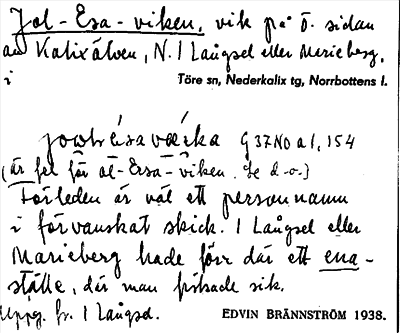 Jol-Esa-viken, vik på ö. sidan
av Kalixälven, N. I Långsel eller Marieberg,
i
Töre sn, Nederkalix tg, Norrbottens l.
G 37 No a 1, 154
(är fel för ol-Ersa-viken. Se d.o.)
Förleden är väl ett personnamn
i förvanskat skick. I Långsel eller
Marieberg hade förr där ett ena-
ställe, där man fiskade sik.
Uppg. fr. I Långsel.
EDVIN BRÄNNSTRÖM 1938.